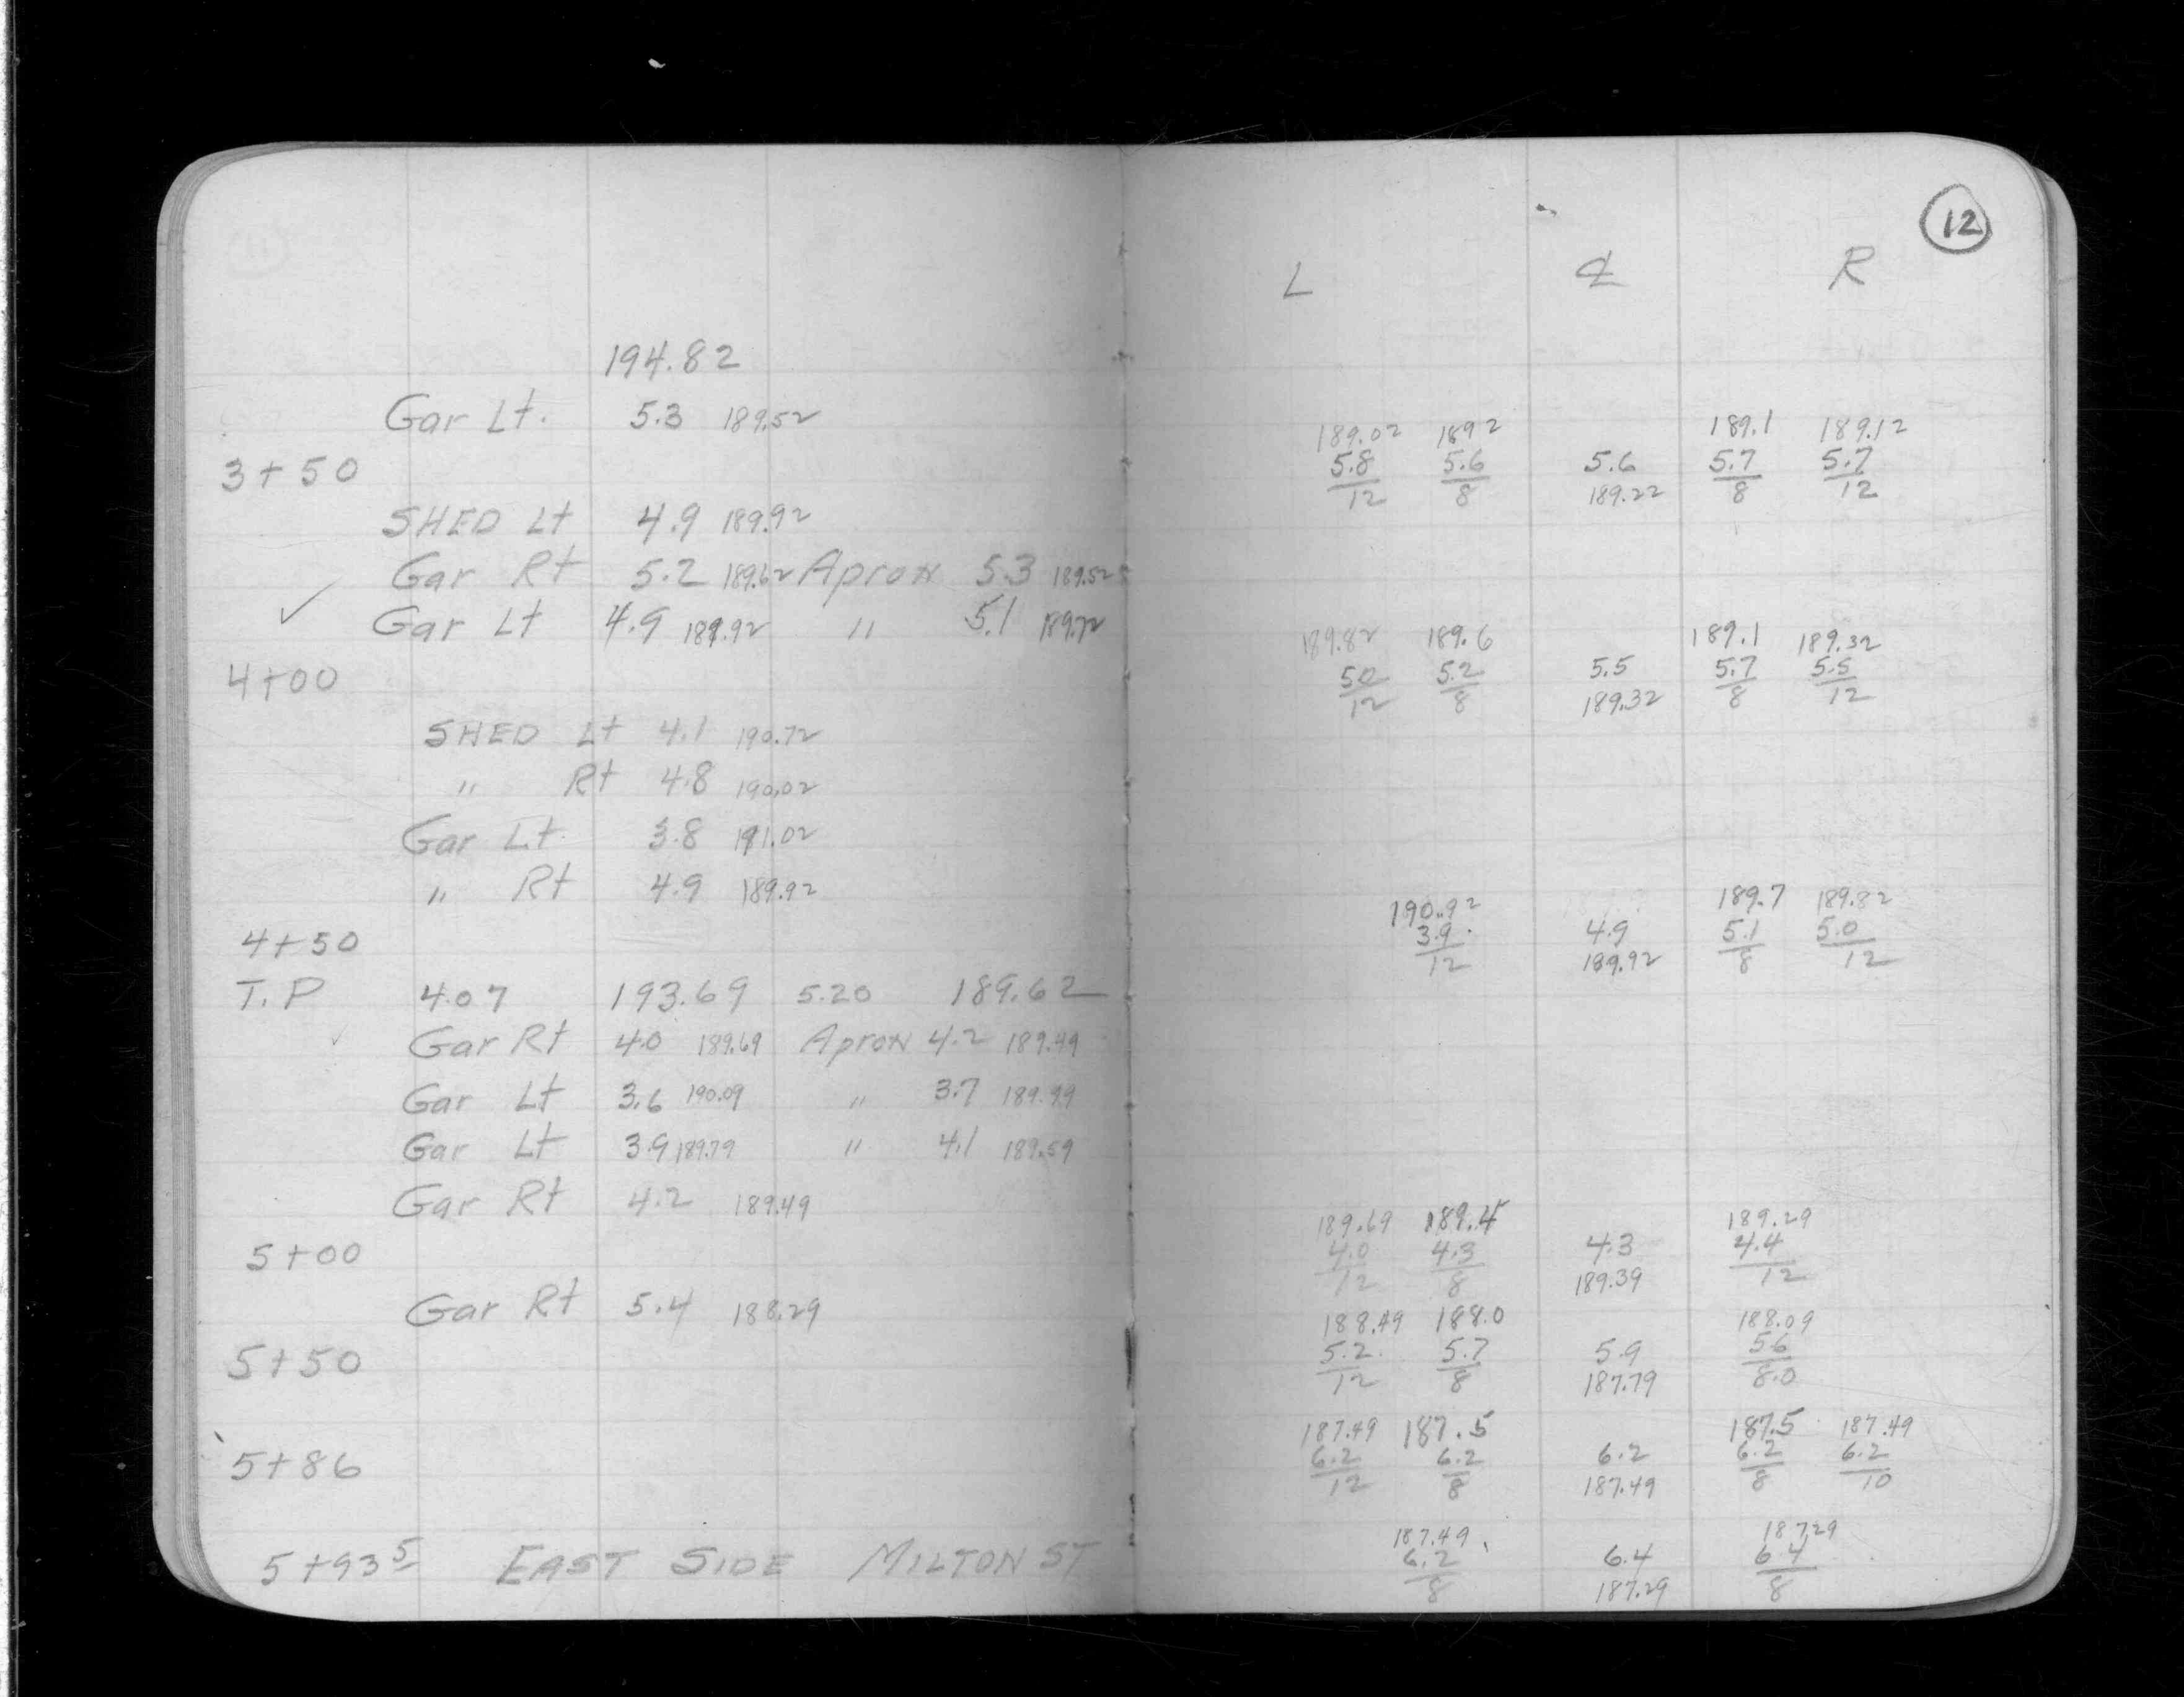 12
L ℄ R
194.82
Gar Lt. 5.3 189.52
189.02 189.2 189.1 189.12
3+50 5.8/12 5.6/8 5.6 5.7/8 5.7/12
189.22
SHED Lt 4.9 189.92
Gar Rt 5.2 189.62 Apron 5.3 189.52
✓ Gar Lt 4.9 189.92 " 5.1 189.72
189.82 189.6 189.1 189.32
4+00 5.0/12 5.2/8 5.5 5.7/8 5.5/12
189.32
SHED Lt 4.1 190.72
" Rt 4.8 190.02
Gar Lt. 3.8 191.02
" Rt 4.9 189.92
190.92 189.7 189.82
4+50 3.9/12 4.9 5.1/8 5.0/12
189.92
T.P 4.07 193.69 5.20 189.62
Gar Rt 4.0 189.69 Apron 4.2 189.49
Gar Lt 3.6 190.09 " 3.7 189.99
Gar Lt 3.9 189.79 " 4.1 189.59
Gar Rt 4.2 189.49
189.69 189.4 189.29
5+00 4.0/12 4.3/8 4.3 4.4/12
189.39
Gar Rt 5.4 188.29
188.49 188.0 188.09
5+50 5.2/12 5.7/8 5.9 5.6/8.0
187.79
187.49 187.5 187.5 187.49
5+86 6.2/12 6.2/8 6.2 6.2/8 6.2/10
187.49
187.49 187.29
5+93 5 EAST SIDE MILTON ST 6.2/8 6.4 6.4/8
187.29